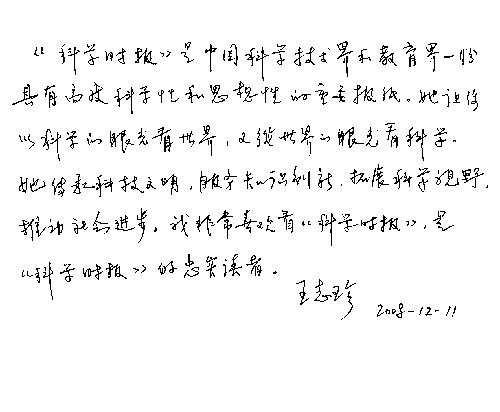 《科学时报》是中国科学技术界和教育界一份
具有高度科学性和思想性的重要报纸。她让你
以科学的眼光看世界，又从世界的眼光看科学。
她传教科技文明，服务知识创新，拓展科学视野，
推动社会进步。我非常喜欢看《科学时报》，是
《科学时报》的忠实读者。
王志珍 2008-12-11